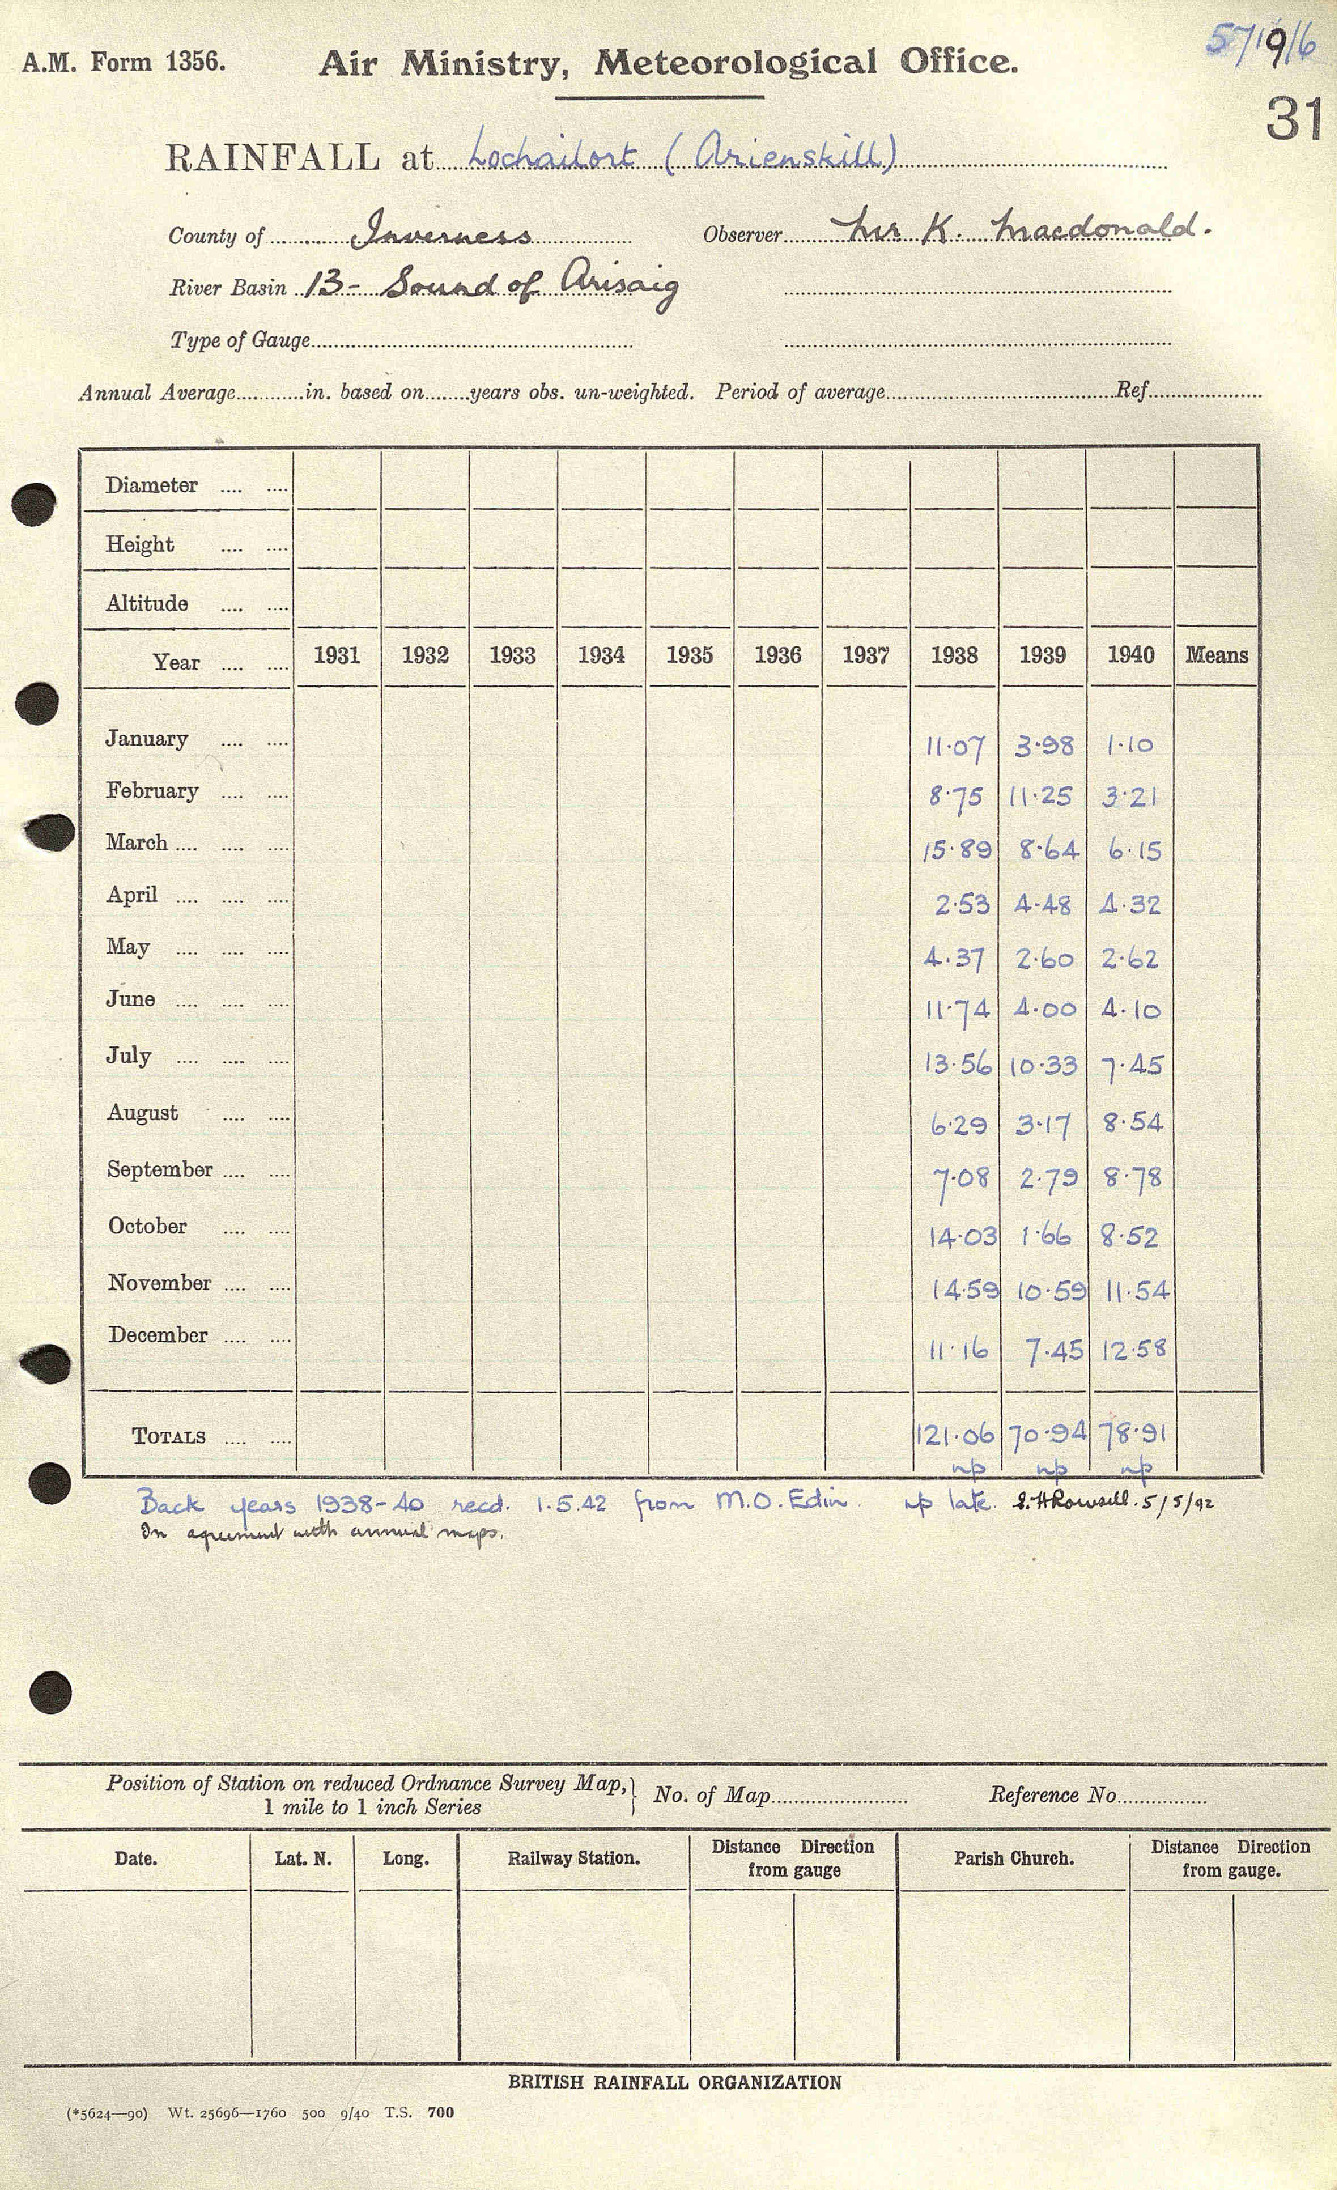 A.M. Form 1356.
Air Ministry, Meteorological Office.
57/9/6
31
RAINFALL at Lochailort (Arienskill)
County of Inverness Observer Mrs K. Macdonald.
River Basin 13- Sound of Arisaig
Type of Gauge
Annual Average in. based on years obs. un-weighted. Period of average Ref.
Diameter
Height
Altitude
Year 1931 1932 1933 1934 1935 1936 1937 1938 1939 1940 Means
January 11.07 3.98 1.10
February 8.75 11.25 3.21
March 15.89 8.64 6.15
April 2.53 4.48 4.32
May 4.37 2.60 2.62
June 11.74 4.00 4.10
July 13.56 10.33 7.45
August 6.29 3.17 8.54
September 7.08 2.79 8.78
October 14.03 1.66 8.52
November 14.59 10.59 11.54
December 11.16 7.45 12.58
TOTALS 121.06 70.94 78.91
np np np
Back years 1938-40 recd. 1.5.42 from M.O. Edin. np late. Rowsell. 5/5/42
In agreement with annual maps.
Position of Station on reduced Ordnance Survey Map,
1 mile to 1 inch Series
No. of Map Reference No.
Date. Lat. N. Long. Railway Station. Distance Direction from gauge Parish Church. Distance Direction from gauge.
BRITISH RAINFALL ORGANIZATION
(*5624—90) Wt. 25696—1760 500 9/40 T.S. 700